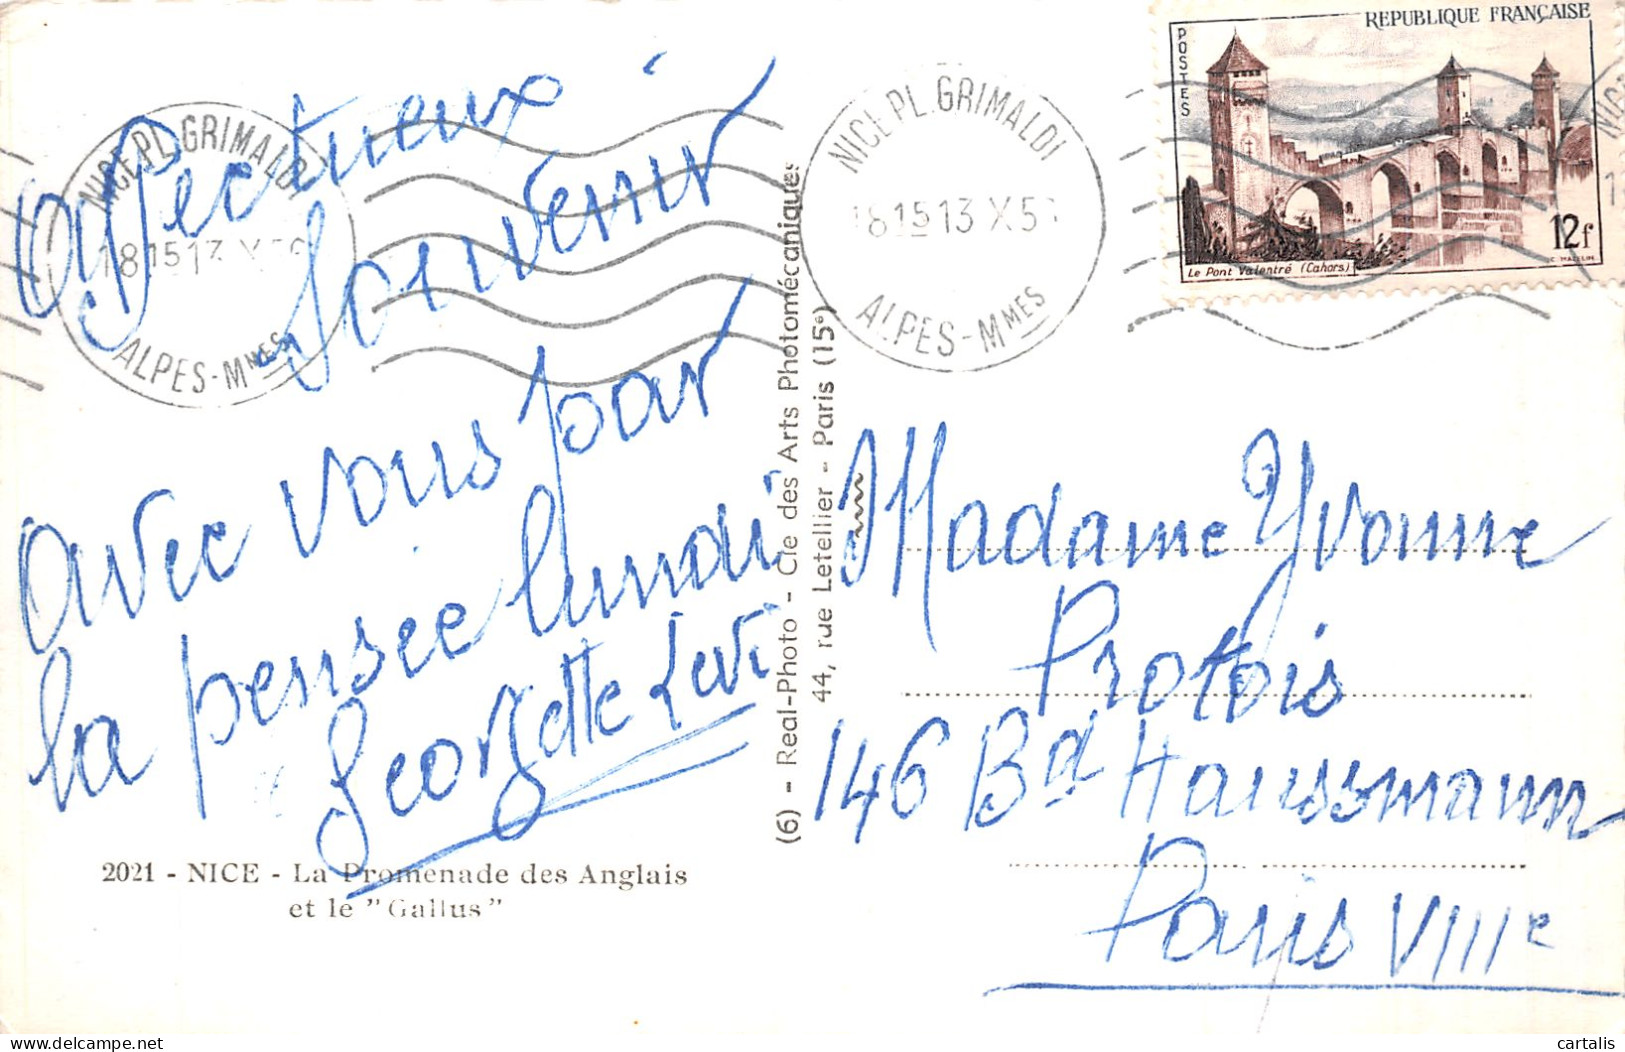 Affectueux
Souvenir
avec vous par
la pensée
Georgette Levi
2021 - NICE - La Promenade des Anglais
et le "Gallus"
NICE PL. GRIMALDI
1815 13 X
ALPES-MMES
(6) - Real-Photo - Cie des Arts Photomécaniques
44, rue Letellier - Paris (15e)
NICE PL. GRIMALDI
1815 13 X 5
ALPES-MMES
REPUBLIQUE FRANÇAISE
POSTES
12f
Le Pont Valentré (Cahors)
C. MAZELIN
NICE
Madame Yvonne
Protois
146 Bd Haussmann
Paris VIIIe
cartalis